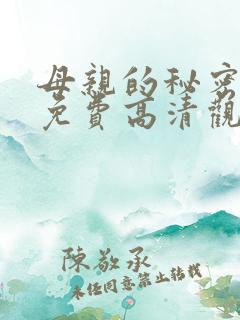 母親的秘密
免費高清觀
陳敬承
未任同意禁止转载